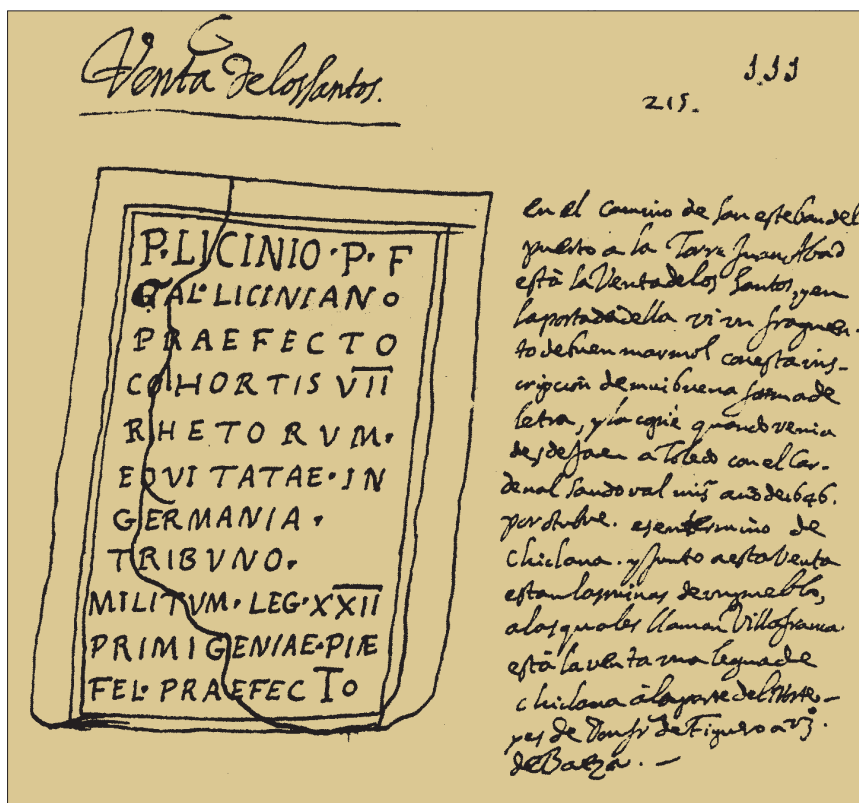 Venta de los Santos.
111
215.
P·LICINIO·P·F
GAL·LICINIANO
PRAEFECTO
COHORTIS VII
RHETORVM·
EQVITATAE·IN
GERMANIA·
TRIBVNO·
MILITVM·LEG·XXII
PRIMIGENIAE·PIAE
FEL·PRAEFECTO
en el camino de san esteban del
puerto a la Torre Juan Abad
està la Venta de los Santos, y en
la portada della vi un fragmen-
to de buen marmol con esta ins-
cripción de mui buena forma de
letra, y la copiè quando venia
desde Jaen a Toledo con el Car-
denal Sandoval mi año de 1646.
por otubre. es en termino de
chiclana. y junto a esta Venta
estan las ruinas de un pueblo,
a las quales llaman Villafranca
està la venta una legua de
chiclana à la parte del Norte-
y es de Don de Figueroa
de Baeza. —